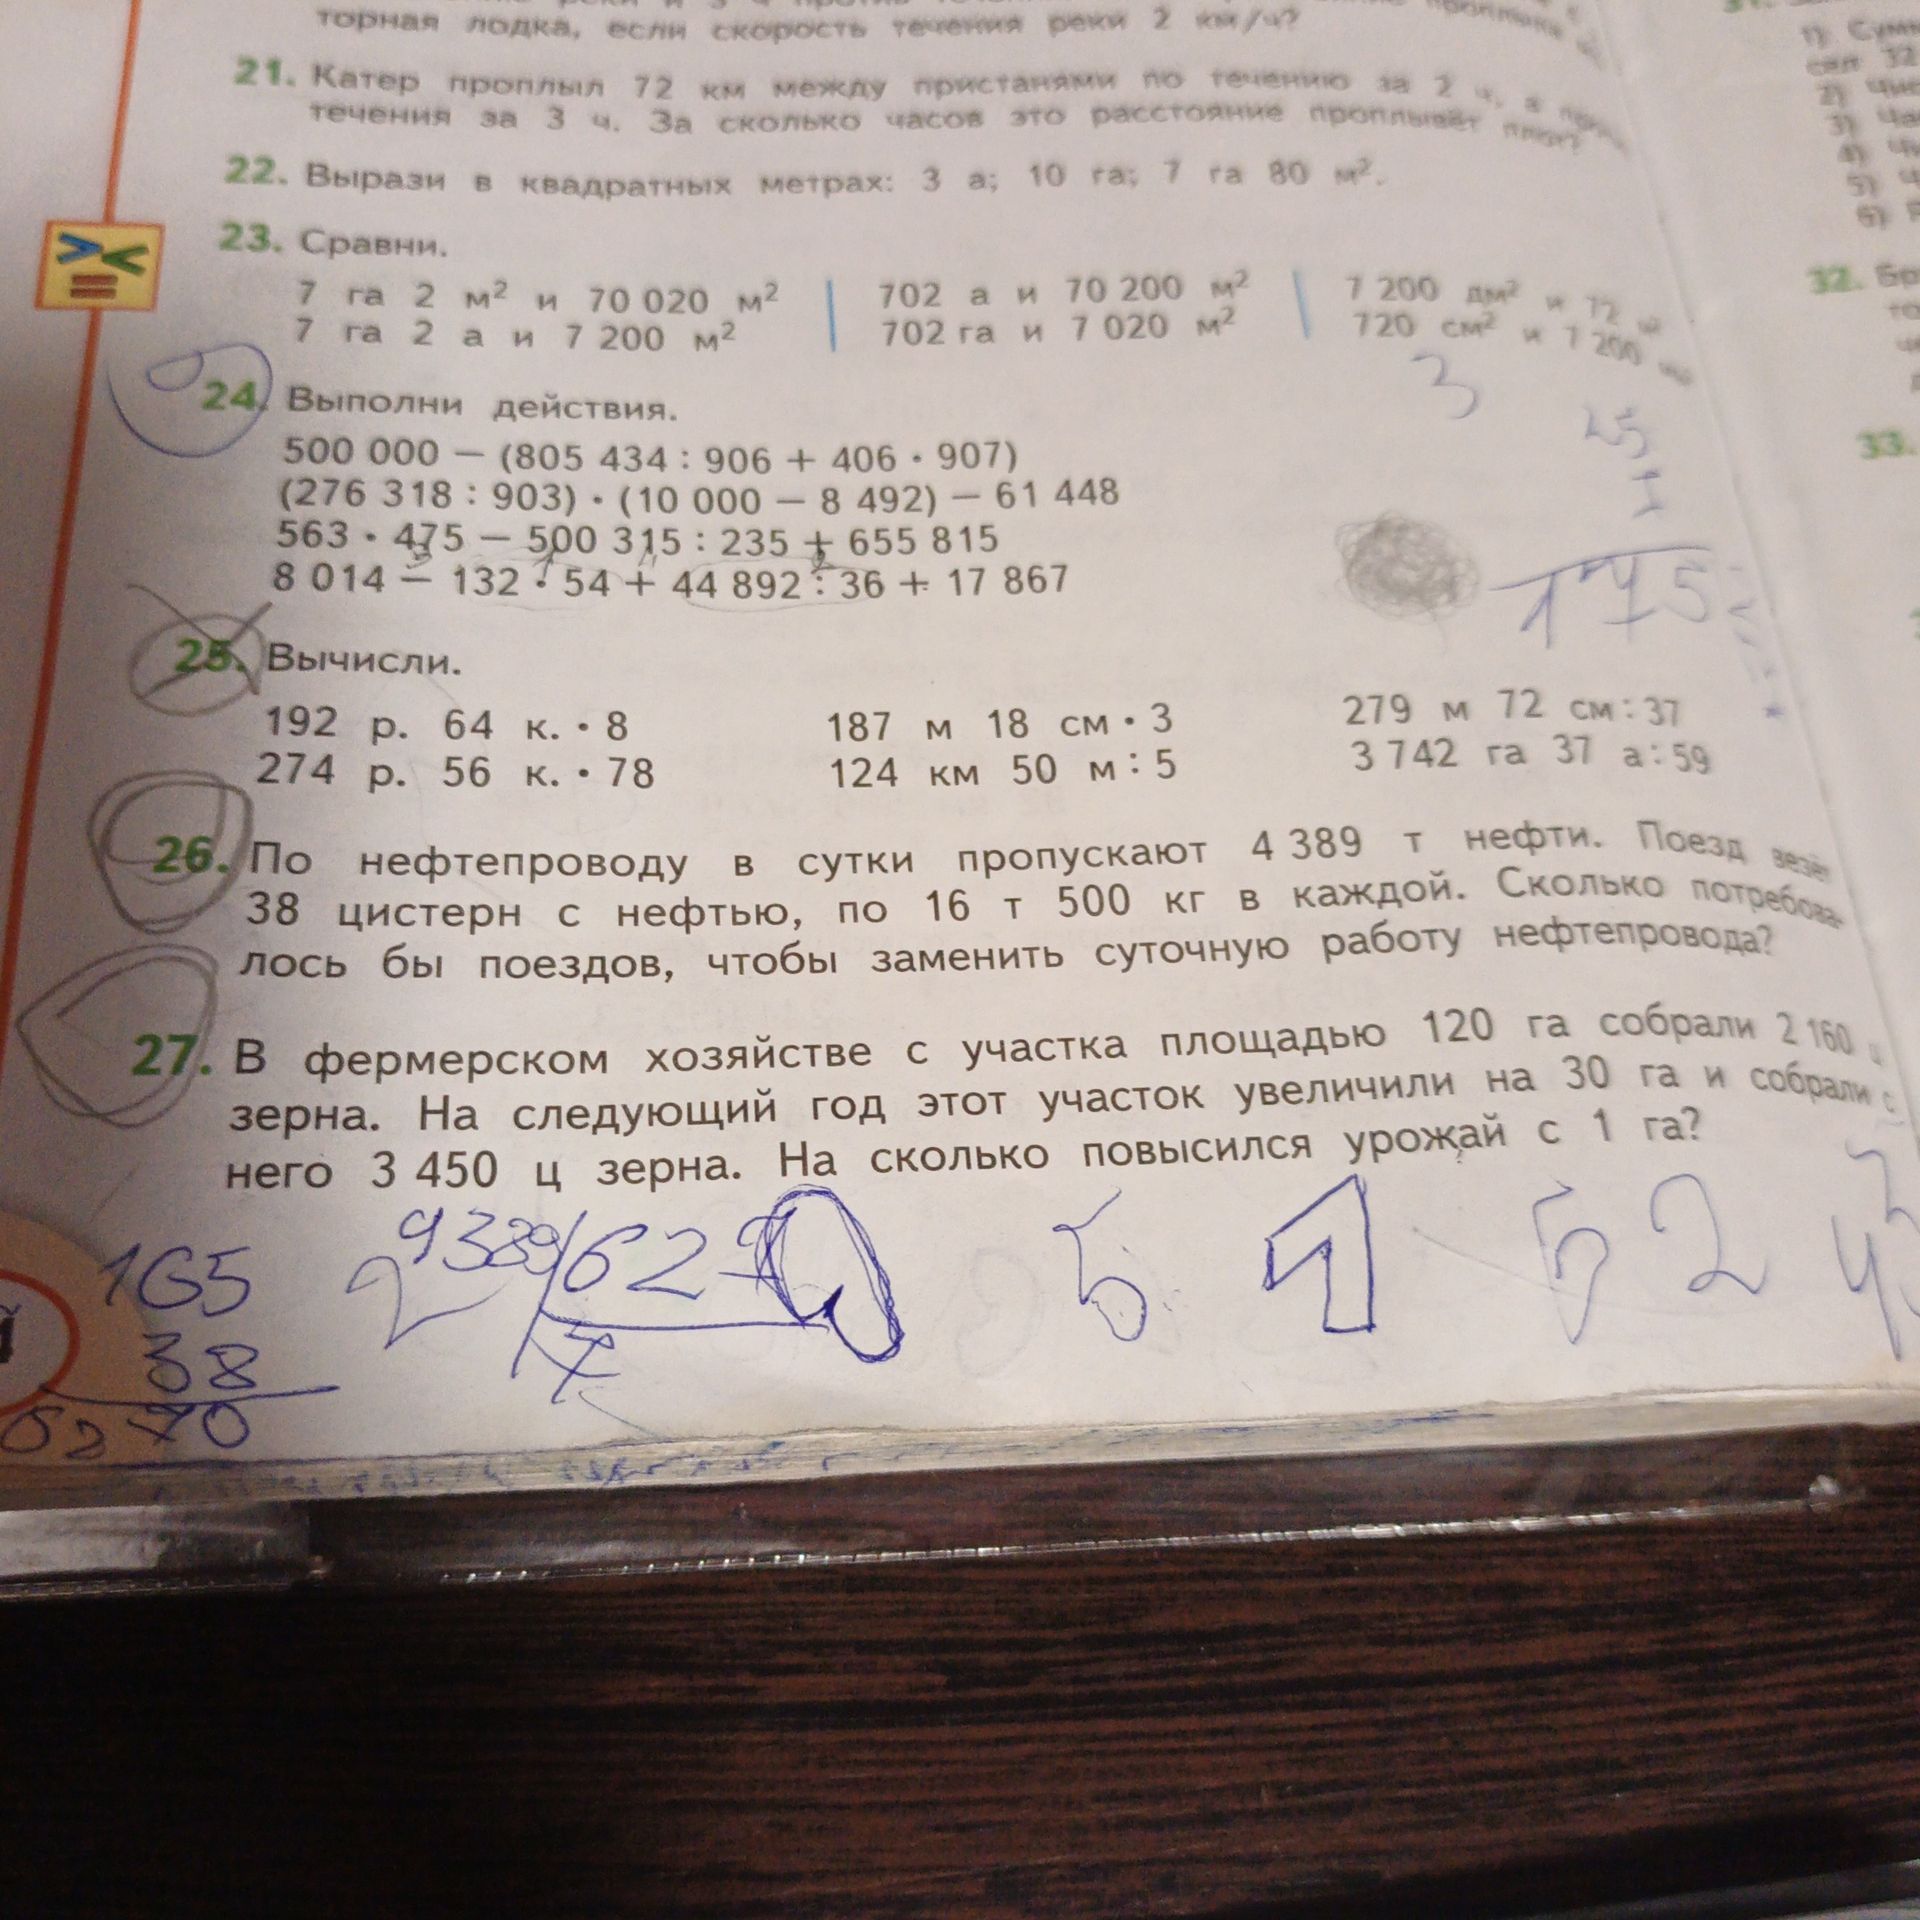 торная лодка, если скорость течения реки 2 км/ч?
21. Катер проплыл 72 км между пристанями по течению за 2 ч, а
течения за 3 ч. За сколько часов это расстояние проплывёт плот?
22. Вырази в квадратных метрах: 3 а; 10 га; 7 га 80 м².
23. Сравни.
7 га 2 м² и 70 020 м² 702 а и 70 200 м² 7 200 дм² и 72
7 га 2 а и 7 200 м² 702 га и 7 020 м² 720 см² и 7 200
24. Выполни действия.
500 000 − (805 434 : 906 + 406 · 907)
(276 318 : 903) · (10 000 − 8 492) − 61 448
563 · 475 − 500 315 : 235 + 655 815
8 014 − 132 · 54 + 44 892 : 36 + 17 867
25. Вычисли.
192 р. 64 к. · 8 187 м 18 см · 3 279 м 72 см : 37
274 р. 56 к. · 78 124 км 50 м : 5 3 742 га 37 а : 59
26. По нефтепроводу в сутки пропускают 4 389 т нефти. Поезд везёт
38 цистерн с нефтью, по 16 т 500 кг в каждой. Сколько потребова-
лось бы поездов, чтобы заменить суточную работу нефтепровода?
27. В фермерском хозяйстве с участка площадью 120 га собрали 2 160
зерна. На следующий год этот участок увеличили на 30 га и собрали с
него 3 450 ц зерна. На сколько повысился урожай с 1 га?
165
38
32.
33.